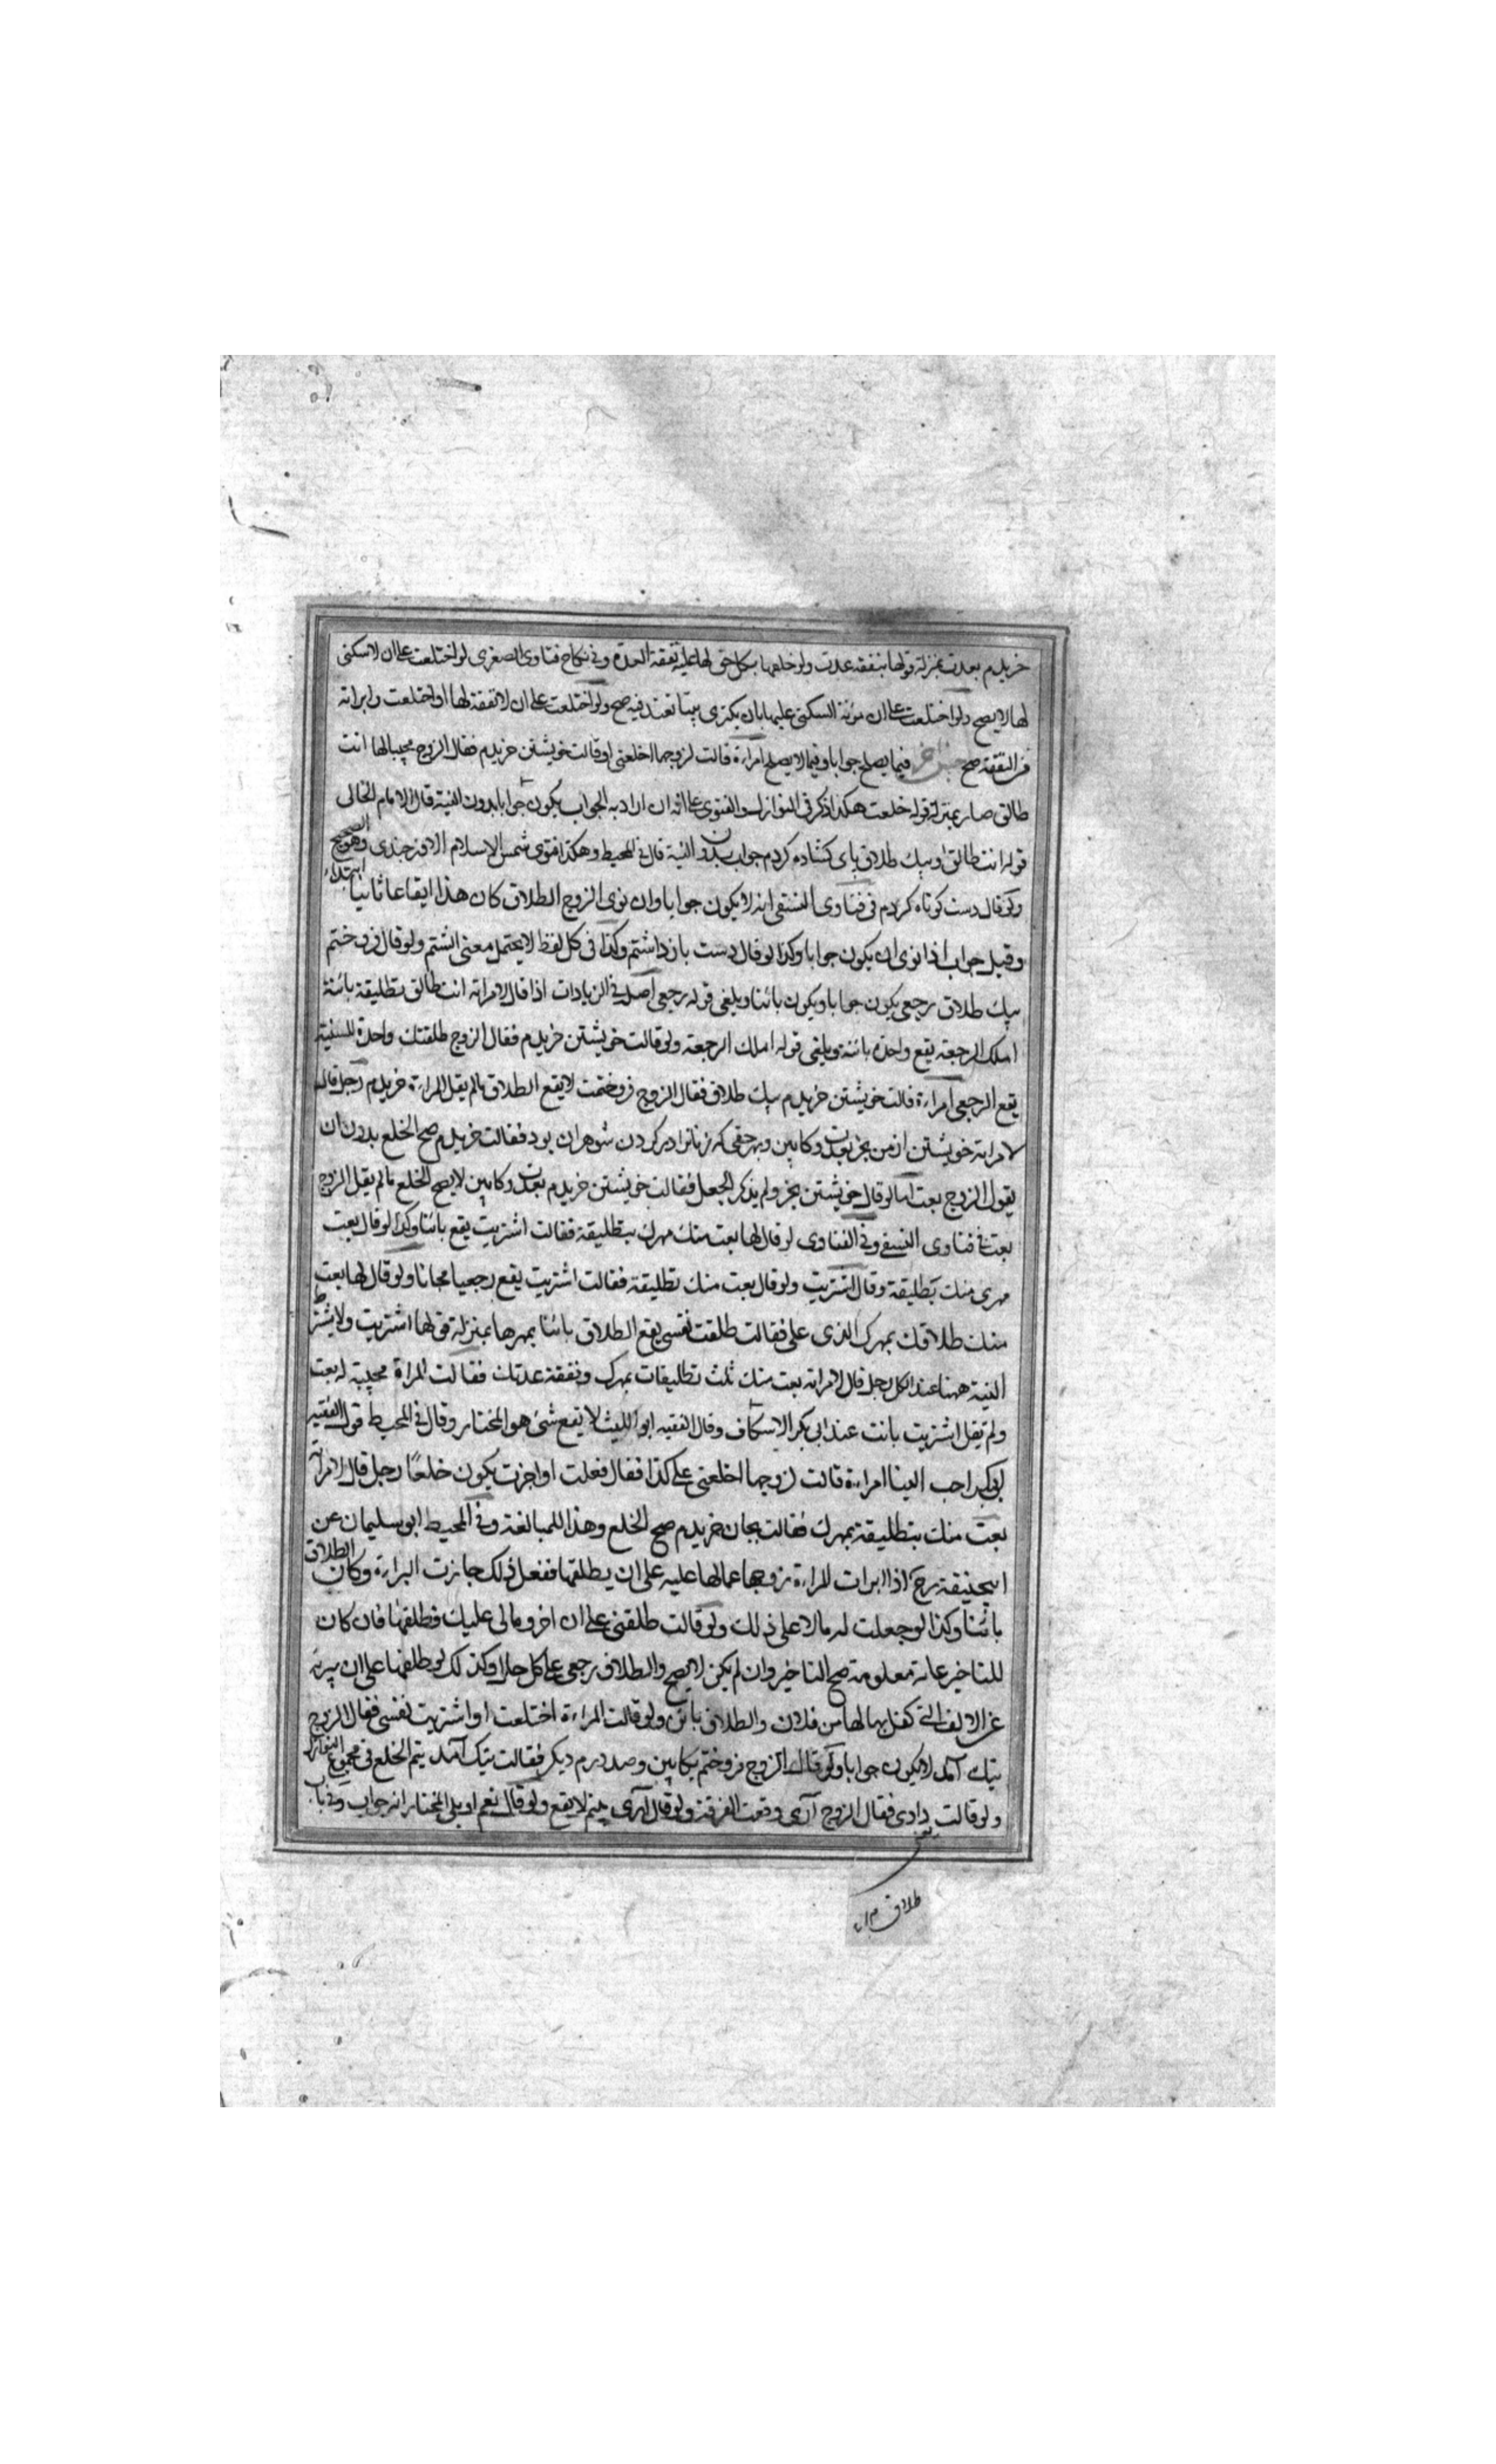 خريدم بعدت بمنزلة قولها بنفقة عدت ولو خلعها بكل حق لها عليه نفقة العدة وفي نكاح فتاوى الصغرى لو اختلعت على ان لا سكنى
لها لا يصح ولو اختلعت على ان مؤنة السكنى عليها بان يكترى بيتا تعتد فيه صح ولو اختلعت على ان لا نفقة لها او اختلعت وابراته
من النفقة صح جنس اخر فيما يصلح جوابا وفيما لا يصلح امراءة قالت لزوجها اخلعني او قالت خويشتن خريدم فقال الزوج مجيبا لها انت
طالق صار بمنزلة قوله خلعت هكذا ذكر في النوازل والفتوى على انه ان اراد به الجواب يكون جوابا بدون النية قال الامام الخالي
قوله انت طالق او بيك طلاق پاى كشاده كردم جواب بدون النية قال في المحيط وهكذا فتوى شمس الاسلام الاوزجندي وهو الصحيح
ولو قال دست كوتاه كردم في فتاوى النسفي انه لا يكون جوابا وان نوى الزوج الطلاق كان هذا ايقاعا ثانيا ابتداء
وقيل جواب اذا نوى ان يكون جوابا وكذا لو قال دست باز داشتم وكذا في كل لفظ لا يحتمل معنى الشتم ولو قال فروختم
بيك طلاق رجعي يكون جوابا ويكون بائنا ويلغى قوله رجعي اصله في الزيادات اذا قال لامراته انت طالق بتطليقة بائنة
املك الرجعة يقع واحدة بائنة ويلغى قوله املك الرجعة ولو قالت خويشتن خريدم فقال الزوج طلقتك واحدة للسنة
يقع الرجعي امراءة قالت خويشتن خريدم بيك طلاق فقال الزوج فروختمت لا يقع الطلاق ما لم يقل المراءة خريدم رجل قال
لامراته خويشتن از من بخر بعدت وكابين وبهر حقى كه زنانرا در كردن شوهران بود فقالت خريدم صح الخلع بدون ان
يقول الزوج بعت اما لو قال خويشتن بخر ولم يذكر الجعل فقالت خويشتن خريدم بعدت وكابين لا يصح الخلع ما لم يقل الزوج
بعت في فتاوى النسفي وفي الفتاوى لو قال لها بعت منك مهرك بتطليقة فقالت اشتريت يقع بائنا وكذا لو قال بعت
مهرى منك بتطليقة وقال اشتريت ولو قال بعت منك تطليقة فقالت اشتريت يقع رجعيا مجانا ولو قال لها بعت
منك طلاقك بمهرك الذى على فقالت طلقت نفسي يقع الطلاق بائنا بمهرها بمنزلة قولها اشتريت ولا يشترط
النية ههنا عند الكل رجل قال لامراته بعت منك ثلث تطليقات بمهرك ونفقة عدتك فقالت المراة مجيبة له بعت
ولم تقل اشتريت بانت عند ابى بكر الاسكاف وقال الفقيه ابو الليث لا يقع شئ هو المختار وقال في المحيط قول الفقيه
ابى بكر احب الينا امراءة قالت لزوجها اخلعني على كذا فقال فعلت او اجزت يكون خلعا رجل قال لامرأته
بعت منك بتطليقة بمهرك فقالت بجان خريدم صح الخلع وهذا للمبالغة وفي المحيط ابو سليمان عن
ابيحنيفة رح اذا ابرات المراءة زوجها عما لها عليه على ان يطلقها ففعل ذلك جازت البراءة وكان الطلاق
بائنا وكذا لو جعلت له مالا على ذلك ولو قالت طلقني على ان اخر ومالى عليك فطلقها فان كان
للتاخير غاية معلومة صح التاخير وان لم يكن لا يصح والطلاق رجعي على كل حال وكذلك لو طلقها على ان يبرئه
عن الالف التي كفل بها لها من فلان والطلاق بائن ولو قالت المراءة اختلعت او اشتريت نفسي فقال الزوج
نيك آمد لا يكون جوابا ولو قال الزوج فروختم بكابين وصد درم ديكر فقالت نيك آمد يتم الخلع في مجموع النوازل
ولو قالت دادى فقال الزوج آرى وقعت الفرقة ولو قال آرى لا يقع ولو قال نعم او بلى المختار انه جواب وفي باب
طلاق